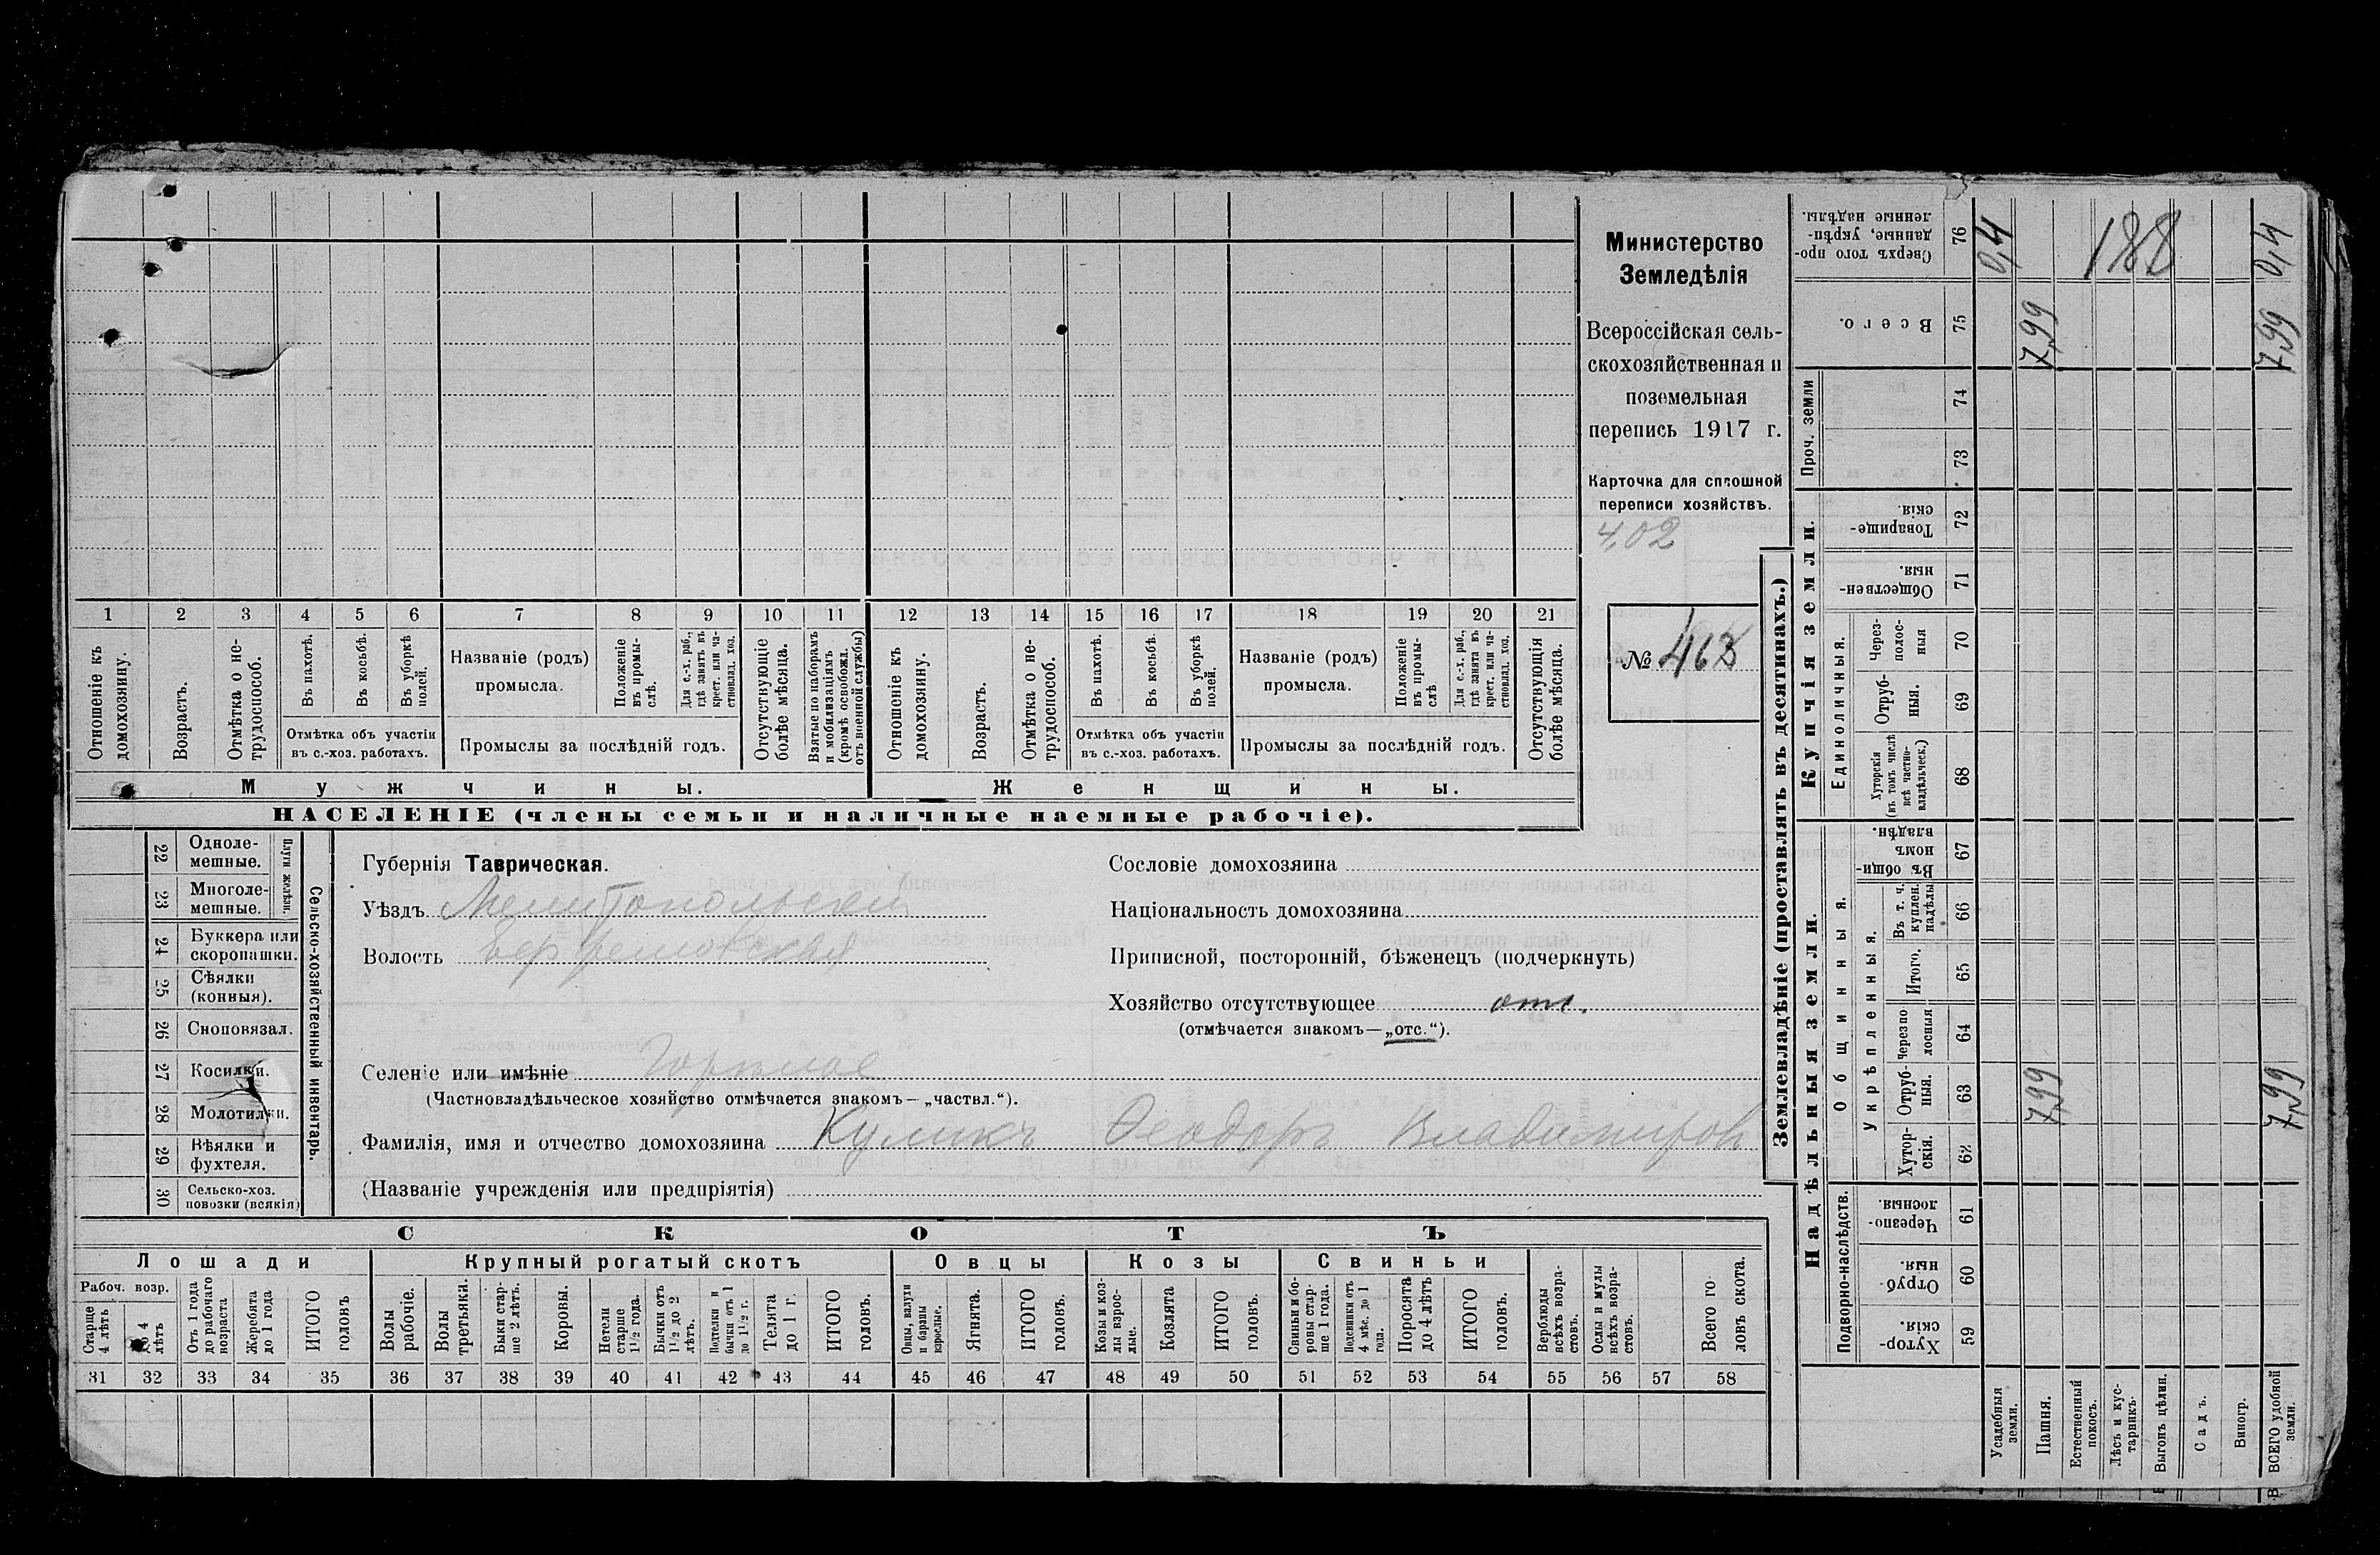 1 2 3 4 5 6 7 8 9 10 11 12 13 14 15 16 17 18 19 20 21
Отношеніе къ домохозяину.
Возрастъ.
Отмѣтка о не-
трудоспособ.
Въ пахотѣ.
Въ косьбѣ.
Въ уборкѣ
полей.
Отмѣтка объ участіи
въ с.-хоз. работахъ.
Названіе (родъ)
промысла.
Положеніе
въ промы-
слѣ.
Для с.-х. раб.,
гдѣ занятъ въ
крест. или ча-
стновлад. хоз.
Промыслы за послѣдній годъ.
Отсутствующіе
болѣе мѣсяца.
Взятые по наборамъ
и мобилизаціямъ
(кромѣ освобожд.
отъ военной службы)
Отношеніе къ
домохозяину.
Возрастъ.
Отмѣтка о не-
трудоспособ.
Въ пахотѣ.
Въ косьбѣ.
Въ уборкѣ
полей.
Отмѣтка объ участіи
въ с.-хоз. работахъ.
Названіе (родъ)
промысла.
Положеніе
въ промы-
слѣ
Для с.-х. раб.,
гдѣ занята въ
крест. или ча-
стновлад. хоз.
Промыслы за послѣдній годъ.
Отсутствующія
болѣе мѣсяца.
Мужчины.
Женщины.
НАСЕЛЕНІЕ (члены семьи и наличные наемные рабочіе).
Министерство
Земледѣлія
Всероссійская сель-
скохозяйственная и
поземельная
перепись 1917 г.
Карточка для сплошной
переписи хозяйствъ.
4,02
№ 463
22 Однолe-
мешные.
23 Многоле-
мешные.
Плуги желѣзн.
24 Буккера или
скоропашки.
25 Сѣялки
(конныя).
26 Сноповязал.
27 Косилки.
28 Молотилки.
29 Вѣялки и
фухтеля.
30 Сельско-хоз.
повозки (всякія)
Сельско-хозяйственный инвентарь.
Губернія Таврическая.
Уѣздъ Мелитопольскій
Волость Ефремовская
Селеніе или имѣніе Горѣлое
(Частновладѣльческое хозяйство отмѣчается знакомъ—„частвл.“).
Фамилія, имя и отчество домохозяина Куликъ Ѳеодоръ Владимировъ
(Названіе учрежденія или предпріятія)
Сословіе домохозяина
Національность домохозяина
Приписной, посторонній, бѣженецъ (подчеркнуть)
Хозяйство отсутствующее отс.
(отмѣчается знакомъ—„отс.“).
СКОТЪ
Лошади
Крупный рогатый скотъ
Овцы
Козы
Свиньи
Рабоч. возр.
Старше
4 лѣтъ
До 4
лѣтъ
Отъ 1 года
до рабочаго
возраста
Жеребята
до 1 года
ИТОГО
головъ
Волы
рабочіе.
Волы
третьяки.
Быки стар-
ше 2 лѣтъ.
Коровы.
Нетели
старше
1½ года.
Бычки отъ
1½ до 2
лѣтъ.
Подтелки и
бычки отъ 1
до 1½ г.
Телята
до 1 г.
ИТОГО
головъ.
Овцы, валухи
и бараны
взрослые.
Ягнята.
ИТОГО
головъ.
Козы и коз-
лы взрос-
лые.
Козлята
ИТОГО
головъ.
Свиньи и бо-
ровы стар-
ше 1 года.
Подсвинки отъ
4 мѣс. до 1
года.
Поросята
до 4 лѣтъ
ИТОГО
головъ.
Верблюды
всѣхъ возра-
стовъ.
Ослы и мулы
всѣхъ возра-
стовъ.
Всего го-
ловъ скота.
31 32 33 34 35 36 37 38 39 40 41 42 43 44 45 46 47 48 49 50 51 52 53 54 55 56 57 58
Землевладѣніе (проставлять въ десятинахъ.)
Надѣльныя земли.
Купчія земли.
Проч. земли
Подворно-наслѣдств.
Общинныя.
Укрѣпленныя.
Единоличныя.
Сверхъ того про-
данные, укрѣп-
ленные надѣлы. 76 0,4 188 0,4
Всего. 75 7,99 7,99
74
73
Товарище-
скія. 72
Обществен-
ныя. 71
Через-
полос-
ныя 70
Отруб-
ныя. 69
Хуторскія
(въ томъ числѣ
всѣ частно-
владѣльческ.) 68
Въ общин-
номъ
владѣн. 67
Въ т. ч.
куплен.
надѣлы 66
Итого. 65
Черезпо
лосныя 64
Отруб-
ныя. 63 7,99 7,99
Хутор-
скія. 62
Черезпо-
лосныя. 61
Отруб-
ныя. 60
Хутор-
скія. 59
Усадебныя
земли.
Пашня.
Естественный
покосъ.
Лѣсъ и кус-
тарникъ.
Выгонъ цѣлин.
Садъ.
Виногр.
ВСЕГО удобной
земли.